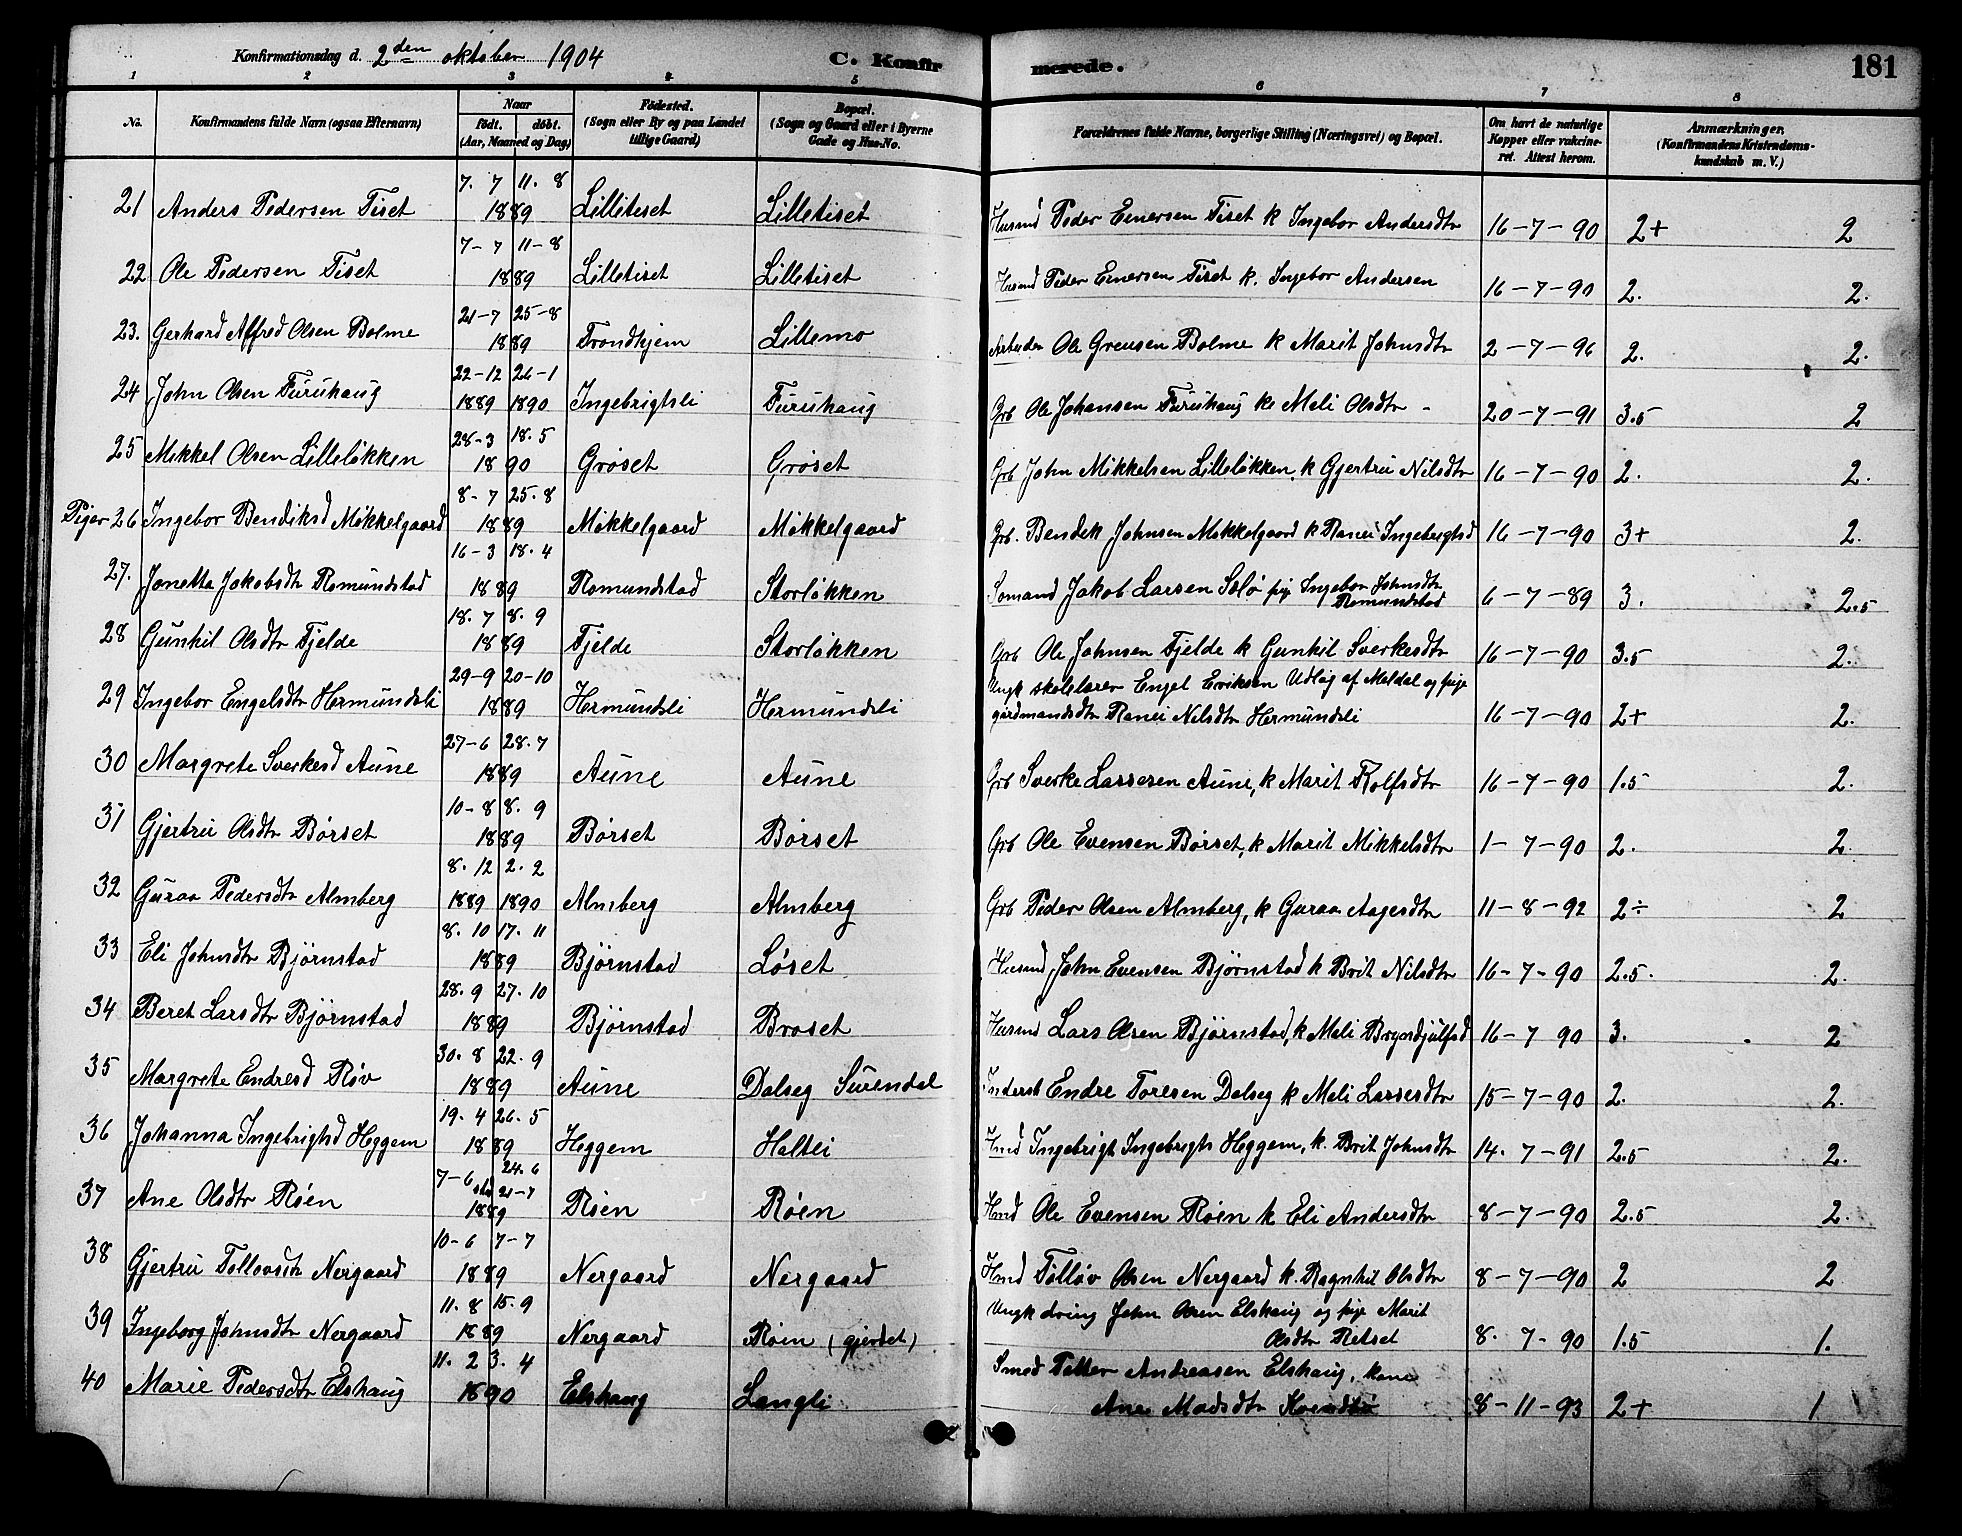 Konfirmationsdag d. 2den oktober 1904 C. Konfirmerede. 181
1 2 3 4 5 6 7 8
No. Konfirmandens fulde Navn (ogsaa Efternavn) Naar födt. döbt. (Aar, Maaned og Dag) Födested. (Sogn eller By og paa Landet tillige Gaard) Bopæl. (Sogn og Gaard eller i Byerne Gade og Hus-No. Forældrenes fulde Navne, borgerlige Stilling (Næringsvei) og Bopæl. Om havt de naturlige Kopper eller vakcineret. Attest herom. Anmærkninger. (Konfirmandens Kristendomskundskab m. V.)
21 Anders Pedersen Tiset 7. 7 11. 8 1889 Lilletiset Lilletiset Husmd Peder Einersen Tiset k Ingebor Andersdtr 16-7-90 2+ 2
22 Ole Pedersen Tiset 7-7 11-8 1889 Lilletiset Lilletiset Husmd Peder Einersen Tiset k. Ingebor Andersen 16-7-90 2. 2.
23. Gerhard Alfred Olsen Bolme 21-7 25-8 1889 Trondhjem Lillemo Arbeider Ole Greusen Bolme k Marit Johnsdtr 2-7-96 2. 2.
24 John Olsen Furuhaug 22-12 26-1 1889 1890 Ingebrigtsli Furuhaug Grb Ole Johansen Furuhaug k Meli Olsdtr - 20-7-91 3.5 2
25 Mikkel Olsen Lilleløkken 28-3 18.5 1890 Grøset Grøset Grb John Mikkelsen Lilleløkken, k Gjertru Nilsdtr 16-7-90 2. 2.
Piger 26 Ingebor Bendiksd Mikkelgaard 8-7 25.8 1889 Mikkelgaard Mikkelgaard Grb. Bendek Johnsen Mikkelgaard k Ranei Ingebrigtsd 16-7-90 3+ 2.
27. Jonetta Jakobsdtr Romundstad 16-3 18.4 1889 Romundstad Storløkken Sømand Jakob Larsen Solø pig Ingebor Johnsdtr Romundstad 6-7-89 3. 2.5
28 Gunhil Olsdtr Fjelde 18.7 8.9 1889 Fjelde Storløkken Grb Ole Johnsen Fjelde k Gunhil Sverkesdtr 16-7-90 3.5 2.
29 Ingebor Engelsdtr Hermundsli 29-9 20-10 1889 Hermundsli Hermundsli Ungk skolelærer Engel Eriksen Udløg af Meldal og pige
gardmandsdtr Ranei Nilsdtr Hermundsli 16-7-90 2+ 2.
30 Margrete Sverkesd Aune 27-6 28.7 1889 Aune Aune Grb Sverke Larsesen Aune, k Marit Rolfsdtr 16-7-90 1.5 2.
31 Gjertru Olsdtr Børset 10-8 8.9 1889 Børset Børset Grb Ole Evensen Børset, k Marit Mikkelsdtr 1-7-90 2. 2.
32 Guraa Pedersdtr Almberg 8.12 2.2 1889 1890 Almberg Almberg Grb Peder Olsen Almberg, k Guraa Aagesdtr 11-8-92 2÷ 2
33 Eli Johnsdtr Bjørnstad 8.10 17.11 1889 Bjørnstad Løset Husmd John Evensen Bjørnstad k Brit Nilsdtr 16-7-90 2.5. 2.
34 Beret Larsdtr Bjørnstad 28.9 27.10 1889 Bjørnstad Brøset Husmd Lars Olsen Bjørnstad, k Meli Bryndjulfsd 16-7 90 3. 2
35 Margrete Endresd Røv 30.8 22.9 1889 Aune Dalseg Surendal Inderst Endre Toresen Dalseg k Meli Larsesdtr 15-7-90 2. 2.
36 Johanna Ingebrigtsd Heggem 19.4 26.5 1889 Heggem Haltli Hmd Ingebrigt Ingebrigts Heggem, k. Brit Johnsdtr 14.7-91 2.5 2.
37 Ane Olsdtr Røen 7-6 24.6 21-7 1889 Røen Røen Hmd Ole Evensen Røen k Eli Andersdtr 8-7-90 2.5 2.
38 Gjertru Tollovsdtr Nergaard 10-6 7-7 1889 Nergaard Nergaard Hmd Tølløv Olsen Nergaard k. Ragnhil Olsdtr 8-7-90 2 2
39 Ingeborg Johnsdtr Nergaard 11.8 15.9 1889 Nergaard Røen (gjerdet) Ungk dreng John Olsen Elshaug og pige Marit
Olsdtr Retset 8.7-90 1.5 1.
40 Marie Pedersdtr Elshaug 11.2 3.4 1890 Elshaug Langli Smed Petter Andreasen Elshaug, kone
Ane Madsdtr 8-11-93 2+ 1